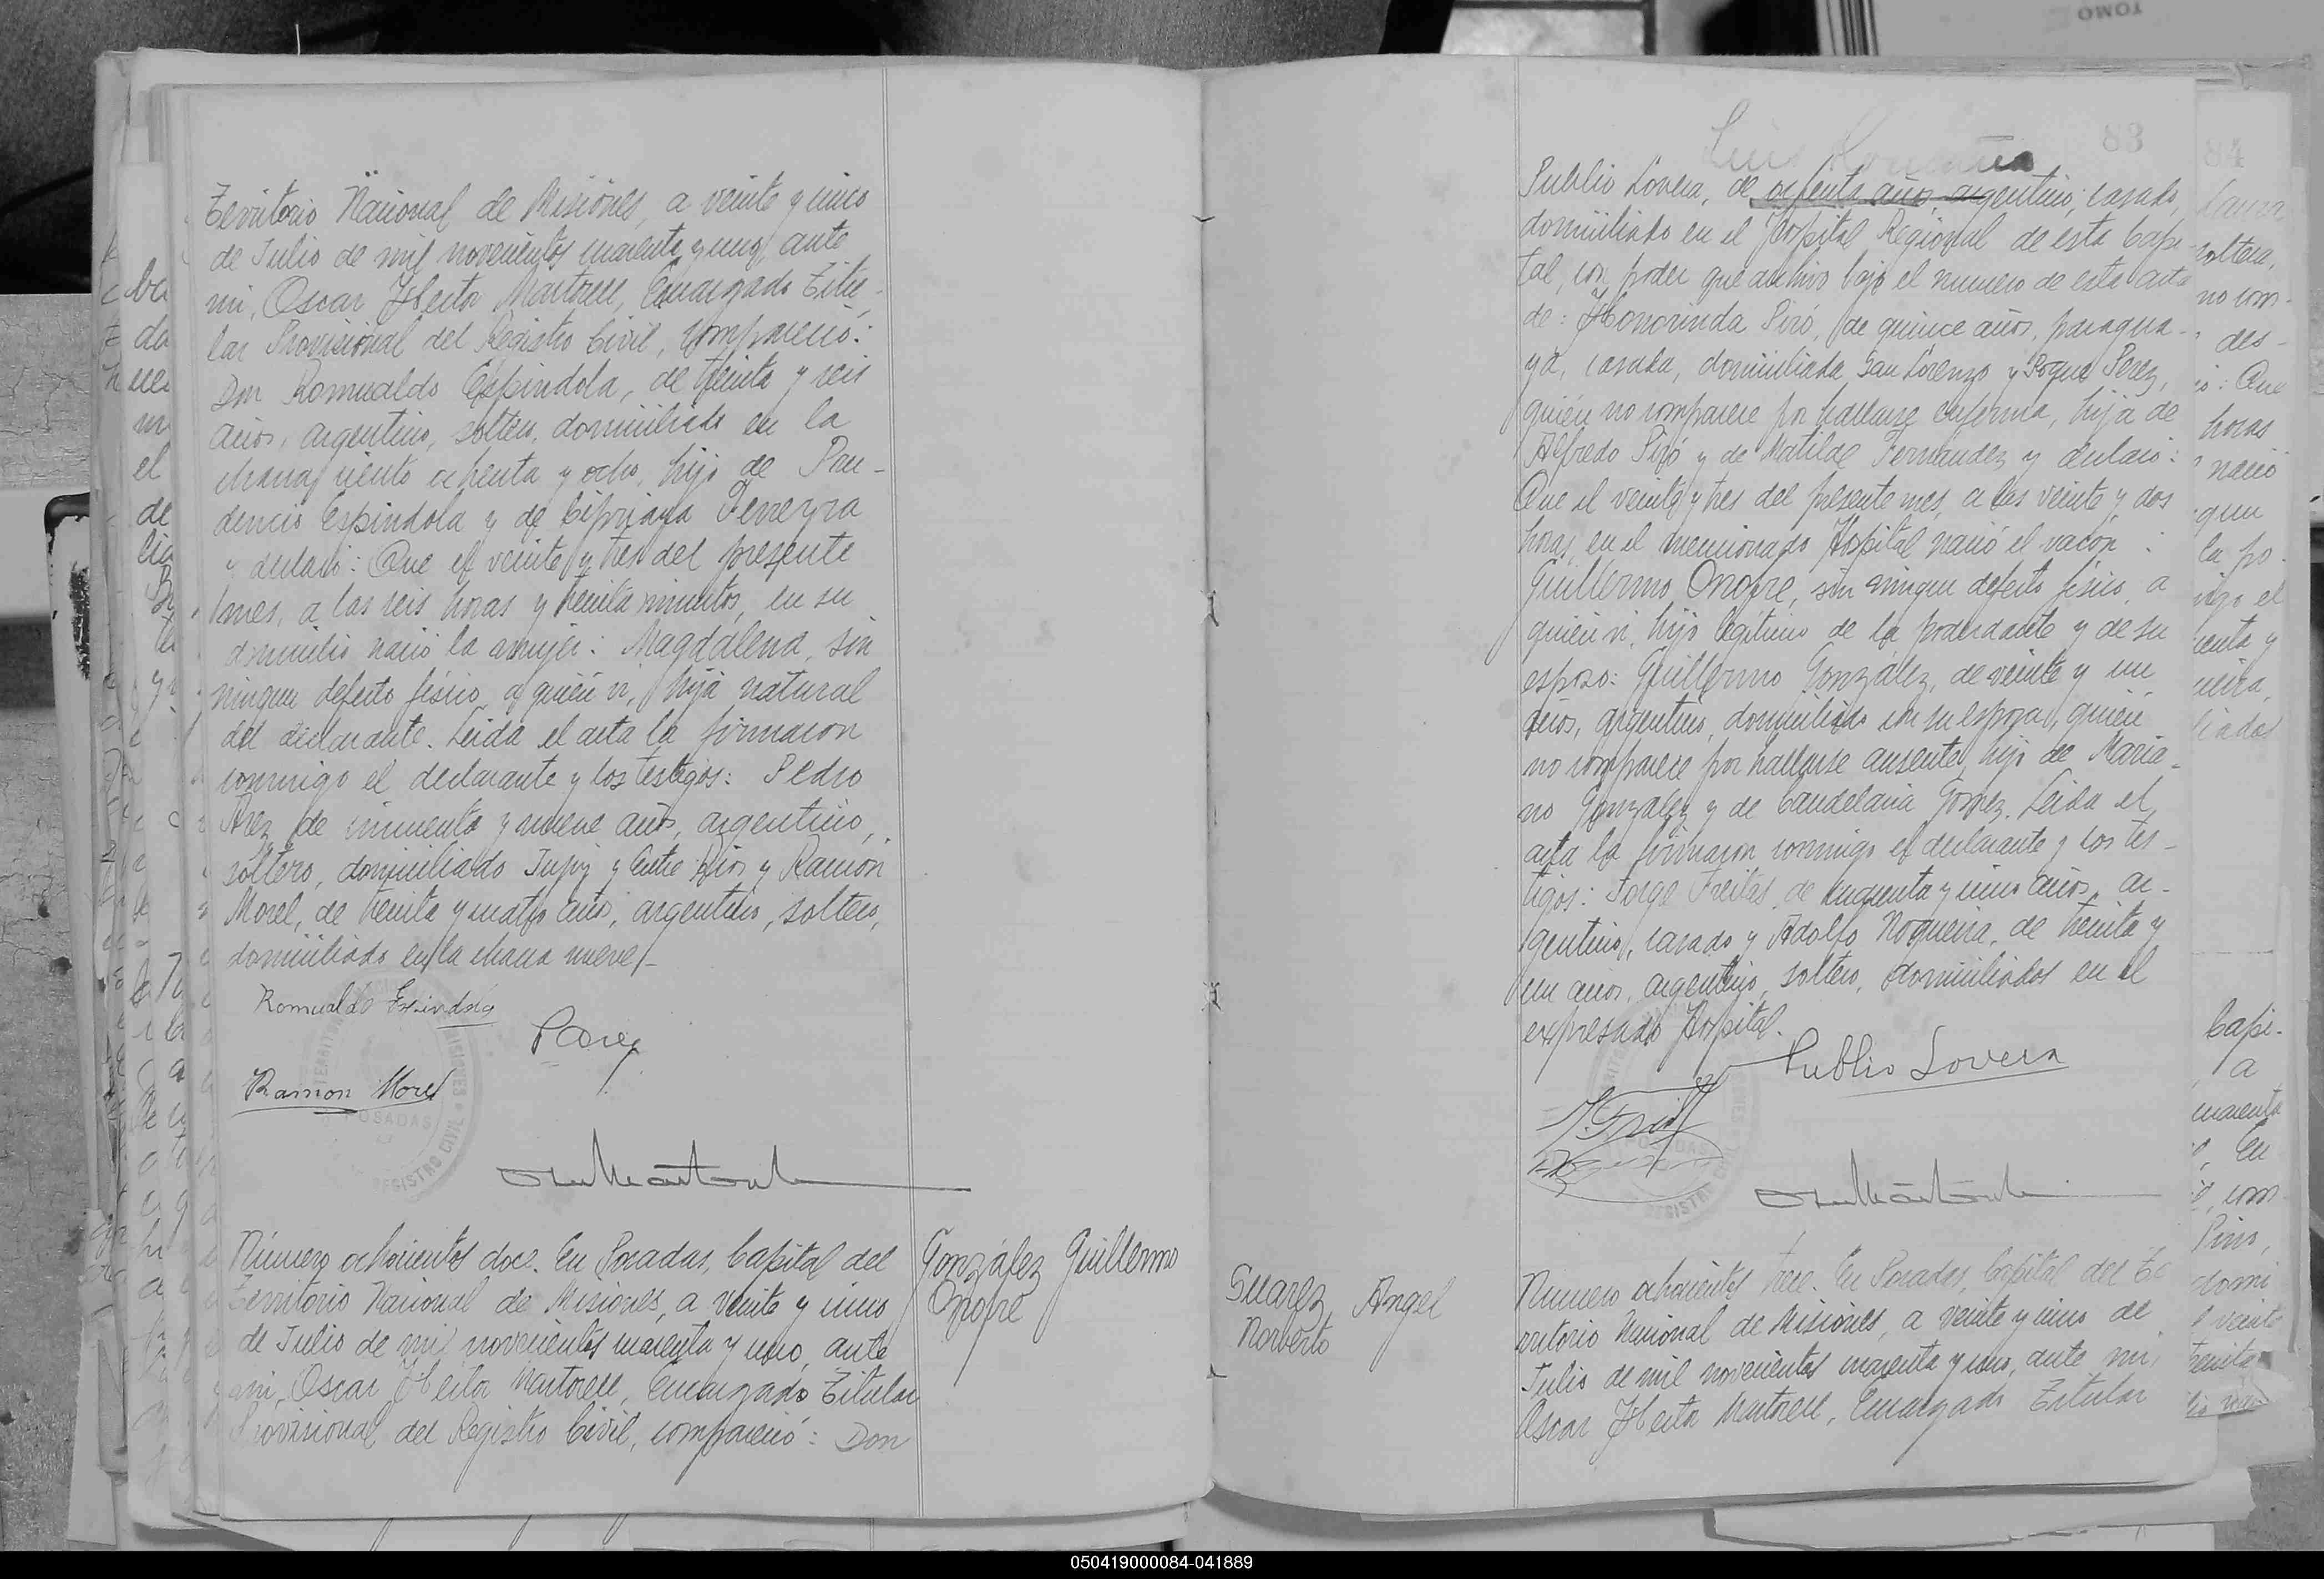 Territorio Nacional de Misiones, a veinte y cinco
de Julio de mil novecientos cuarenta y uno, ante
mi, Oscar Hector Martorell, Encargado Titu-
lar Provisional del Registro Civil, compareció:
Don Romualdo Espindola, de treinta y seis
años, argentino, soltero, domiciliado en la
chacra ciento ochenta y ocho, hijo de Pru-
dencio Espindola y de Cipriana Ferreyra
y declaró: Que el veinte y tres del presente
mes, a las seis horas y treinta minutos, en su
domicilio nació la mujer: Magdalena, sin
ningun defecto fisico, a quien vi, hija natural
del declarante. Leida el acta la firmaron
conmigo el declarante y los testigos: Pedro
Arez, de cincuenta y nueve años, argentino,
soltero, domiciliado Jujuy y Entre Rios y Ramón
Morel, de treinta y cuatro años, argentino, soltero,
domiciliado en la chacra nueve.-
Romualdo Espindola
P Arez
Ramon Morel
POSADAS
REGISTRO CIVIL
Número ochocientos doce. En Posadas, Capital del
Territorio Nacional de Misiones, a veinte y cinco
de Julio de mil novecientos cuarenta y uno, ante
mi, Oscar Hector Martorell, Encargado Titular
Provisional del Registro Civil, compareció: Don
González Guillermo
Onofre
83
Publio Lovera, de argentino, casado,
domiciliado en el Hospital Regional de esta Capi-
tal, con poder que archivo bajo el numero de esta acta
de: Honorinda Piró, de quince años, paragua-
ya, casada, domiciliada San Lorenzo y Roque Perez,
quién no comparece por hallarse enferma, hija de
Alfredo Piró y de Matilde Fernandez y declaró:
Que el veinte y tres del presente mes, a las veinte y dos
horas, en el mencionado Hospital nació el varón :
Guillermo Onofre, sin ningun defecto fisico, a
quien vi, hijo legitimo de la poderdante y de su
esposo: Guillermo González, de veinte y un
años, argentino, domiciliado con su esposa, quien
no comparece por hallarse ausente, hijo de Maria-
no González y de Candelaria Gomez. Leida el
acta la firmaron conmigo el declarante y los tes-
tigos: Jorge Freitas, de años, ar-
gentino, casado y Adolfo Nogueira, de treinta y
un años, argentino, soltero, domiciliados en el
expresado Hospital.
Publio Lovera
Suarez Angel
Norberto
Número ochocientos trece. En Posadas, Capital del Te
rritorio Nacional de Misiones, a veinte y cinco de
Julio de mil novecientos cuarenta y uno, ante mi,
Oscar Hector Martorell, Encargado Titular
84
TOMO
050419000084-041889